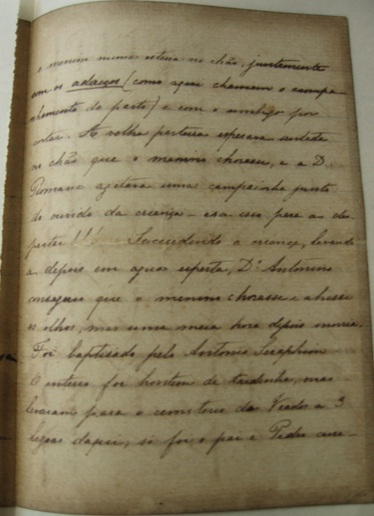 o menino numa esteira no chão, juntamente
com os adaços (como aqui chamam o acompa-
nhamento do parto) e com o umbigo por
cortar. A velha parteira esperava sentada
no chão que o menino chorasse, e a D.
Romana agitava uma campainha junto
do ouvido da criança – era isso para a des-
pertar!!! Sacudindo a criança, levando
a depois em agua esperta, Dr. Antonino
conseguio que o menino chorasse e abrisse
os olhos, mas uma meia hora depois morria.
Foi baptisado pelo Antonio Seraphim
O enterro foi hontem de tardinha, mas
levaram para o cemiterio do Veado a 3
legoas daqui, só foi o pai e Pedro